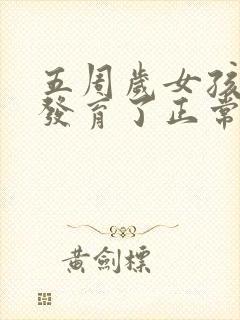 五周歲女孩
發育了正常
黃劍標